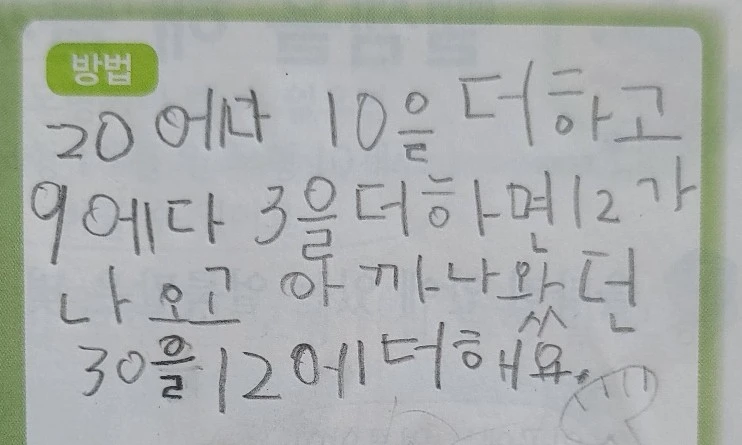 방법
20에다 10을 더하고
9에다 3을더하면12가
나오고 아까나왔던
30을12에더해요.